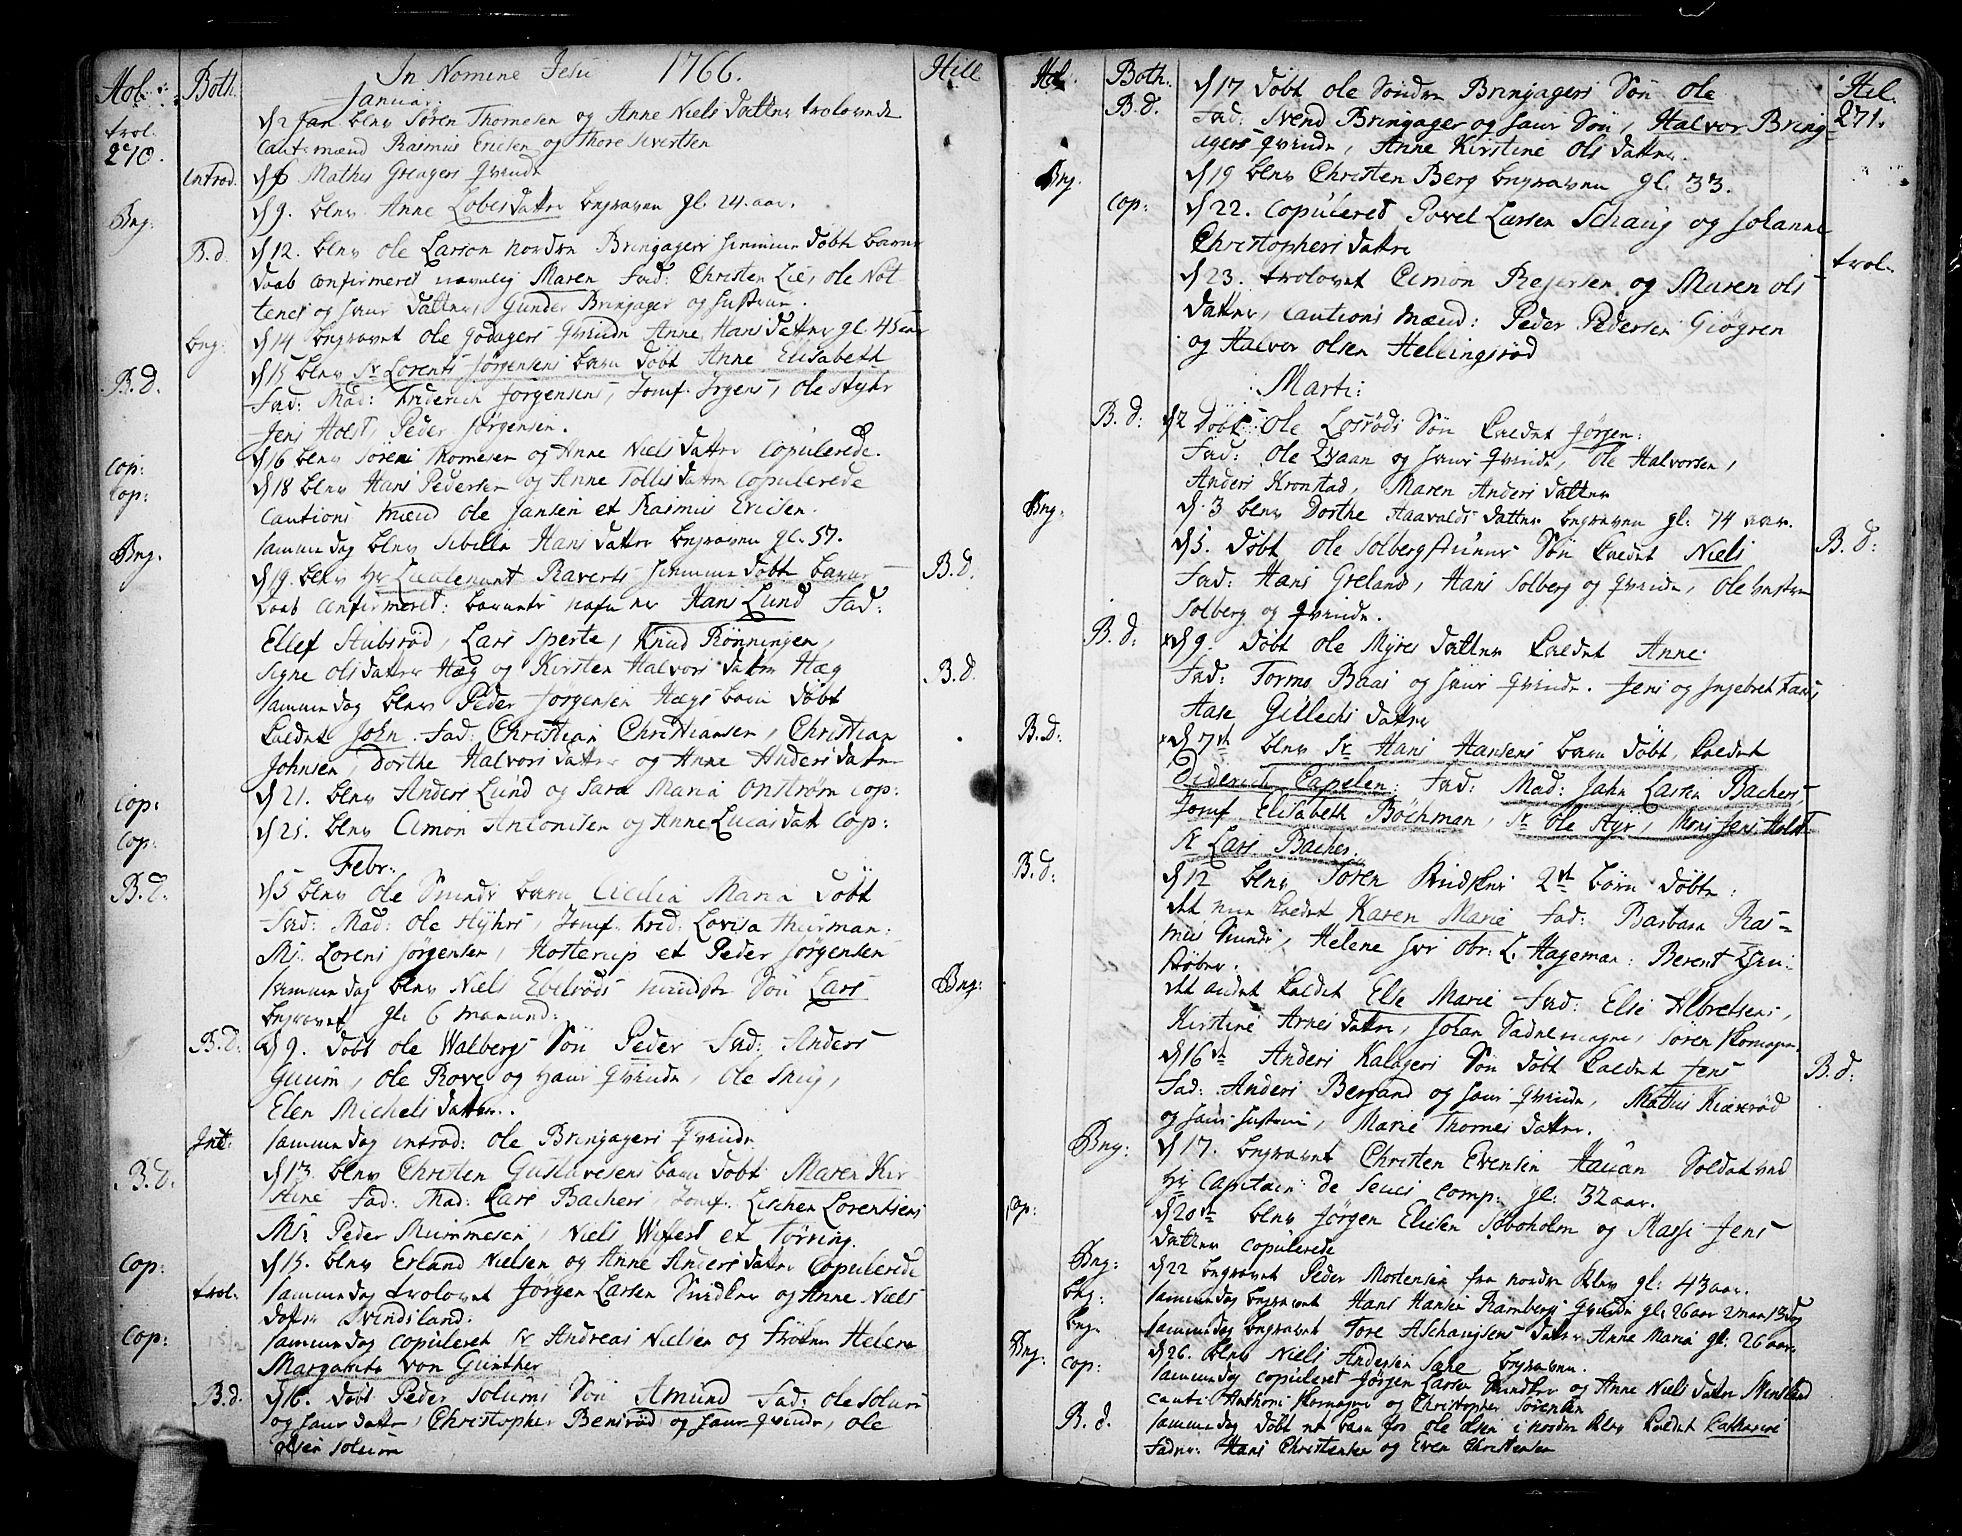 Hol: Both. In Nomine Jesu 1766. Hill
Januari
trol. d 2 Jan. blev Søren Thomesen og Anne Niels datter trolovede
270. Cauts mænd Rasmus Ericsen og Thore Sivertsen
introd. d 6 Mathis Grengers Qvinde
Beg: d 9. blev Anne Lobes datter begraven gl. 24 aar.
B.d. d 12. blev Ole Larson nordre Bringagers hiemme døbte barns
daab confirmeret navnlig Maren Fad: Christen Lie, ole Not
tenes og hans datter, Gunder Bringager og hustrue.
beg: d 14 begravet Ole Godagers Qvinde Anne Hans datter gl. 45 aar
B.d. d 15 blev Sr Lorents Jørgensens barn døbt Anne Elisabeth
Fad: Mad: Friderich Jørgensens, Jomf. Irgens, Ole Styhr
Jens Holst, Peder Jørgensen.
Cop: d 16 blev Søren Thomesen og Anne Niels datter Copulerede.
Cop: d 18 blev Hans Pedersen og Anne Tollis datter Copulerede
Cautions Mænd Ole Jansen et Rasmus Ericsen.
Beg: samme dag blev Sibilla Hans datter begraven gl. 57.
d 19. blev Hr Lieutenant Raverts hiemme døbte barns B.d.
daab confirmeret: barnets nafn er Hans Lund Fad:
Ellef Stubsrød, Lars Sperte, Knud Rønningen,
Signe ols datter Hæg og Kirsten Halvors datter Hæg
samme dag blev Peder Jørgensen Hægs barn døbt B.d.
kaldet John. Fad: Christian Christiansen, Christian
Johnsen, Dorthe Halvors datter og Anne Anders datter
Cop: d 21. blev Anders Lund og Sara Maria Onstrøm Cop:
Cop: d 25. blev Cimon Antonisen og Anne Lucas datt Cop:
Febr:
B.d. d 5 blev Ole Smeds barn Cicilia Maria døbt
Fad: Mad: Ole Styhrs, Jomf. Frid: Lovisa Thurman:
Ms. Lorens Jørgensen, Hosterup et Peder Jørgensen
samme dag blev Niels Evelrøds mindste Søn Lars Beg:
begravet gl. 6 maaned:
B.d. d 9. døbt ole Walbergs Søn Peder Fad: Anders
Guum, Ole Rove og Hans Qvinde, Ole Snig,
Elen Michels datter.
Int: samme dag introd: Ole Bringagers Qvinde
B.d. d 13. blev Christen Gustavesens barn døbt Maren Kir
stine Fad: Mad: Lars Bachers, Jomf. Lischen Lorentsens
Ms: Peder Mummesen, Niels Wiffert et Tørring.
Cop: d 15. blev Erland Nielsen og Anne Anders datter Copulerede
trol. samme dag trolovet Jørgen Larsen Smidker og Anne Niels
datter Svendsland.
Cop: samme dag copuleret Sr Andreas Nielsen og Frøken Helene
Margareta von Günther
B.d. d 16. døbt Peder Solums Søn Amund Fad: Ole Solum
og hans datter, Christopher Bensrød og hans Qvinde, Ole
olsen Solum
Hol. Both. d 17 døbt ole Søndre Bringagers Søn Ole Hil.
B.d. Fad: Svend Bringager og hans Søn, Halvor Bring- 271.
agers Qvinde, Anne Kirstine Ols datter.
Beg. d 19 blev Christen Berg begraven gl. 33.
Cop: d 22. Copuleret Povel Larsen Schaug og Johanne
Christophers datter
d 23. trolovet Cimon Rejersen og Maren ols trol.
datter, Cautions Mænd: Peder Pedersen Giøgren
og Halvor olsen Hellingsrød
Marti:
B.d: d 2 døbt Ole Losrøds Søn kaldet Jørgen:
Fad: Ole Daan og hans Qvinde, Ole Halvorsen,
Anders Kronstad, Maren Anders datter
Beg: d. 3 blev Dorthe Haavalds datter begraven gl. 74 aar.
d 5. døbt ole Solbergstuens Søn kaldet Niels B.d:
Fad: Hans Greland, Hans Solberg og Qvinde, Ole vestre
Solberg og Qvinde.
B.d: d 9. døbt ole Myres datter kaldet Anne
Fad: Tormo Baas og hans Qvinde. Jens og Ingebret Faas,
Aase Gullechs datter
B.d: d 7de blev Sr Hans Hansens barn døbt kaldet
Diderich Capelen: Fad: Mad: Jahn Larsen Bachers,
Jomf Elisabeth Böchman, Sr Ole Styr, Mons. Jens Holst
Sr Lars Bacher.
B.d: d 12 blev Søren Snidkers 2de børn døbte:
det ene kaldet Karen Marie Fad: Barbara Ras-
mus Smeds, Helene hos obr: L. Hageman: Berent
støber.
det andet kaldet Else Marie Fad: Else Albretsens,
Kirstine Arnes datter, Johan Sadnemager, Søren Skomager
d 16de Anders Kalagers Søn døbt kaldet Jens B.d:
Fad: Anders Bersand og hans Qvinde, Mathis Kiærrød
og hans hustrue, Marie Thomes datter.
Beg: d 17. begravet Christen Evensen Hauan Soldat ved
Hr Capitain de Seues Comp: gl: 32 aar.
Cop: d 20de blev Jørgen Elisen Søboholm og Masse Jens
datter copulerede
Beg: d 22 begravet Peder Mortensen fra nordre Klev gl: 43 aar.
beg: samme dag begravet Hans Hansen Ramberg Qvinde gl: 26 aar 2 maan 13 dag
beg. samme dag begravet Tore Aschaugsens datter Anne Maria gl: 26 aar
Beg: d 26. blev Niels Andersen Sane begraven.
Cop: samme dag copuleret Jørgen Larsen Snidker og Anne Niels datter Svensland
Cauti: Anthoni Skomager og Christopher Sørensen
B.d. samme dag døbt et barn for ole olsen i nordre Klev kaldet Catharine
Fadre: Hans Christensen og Even Christensen